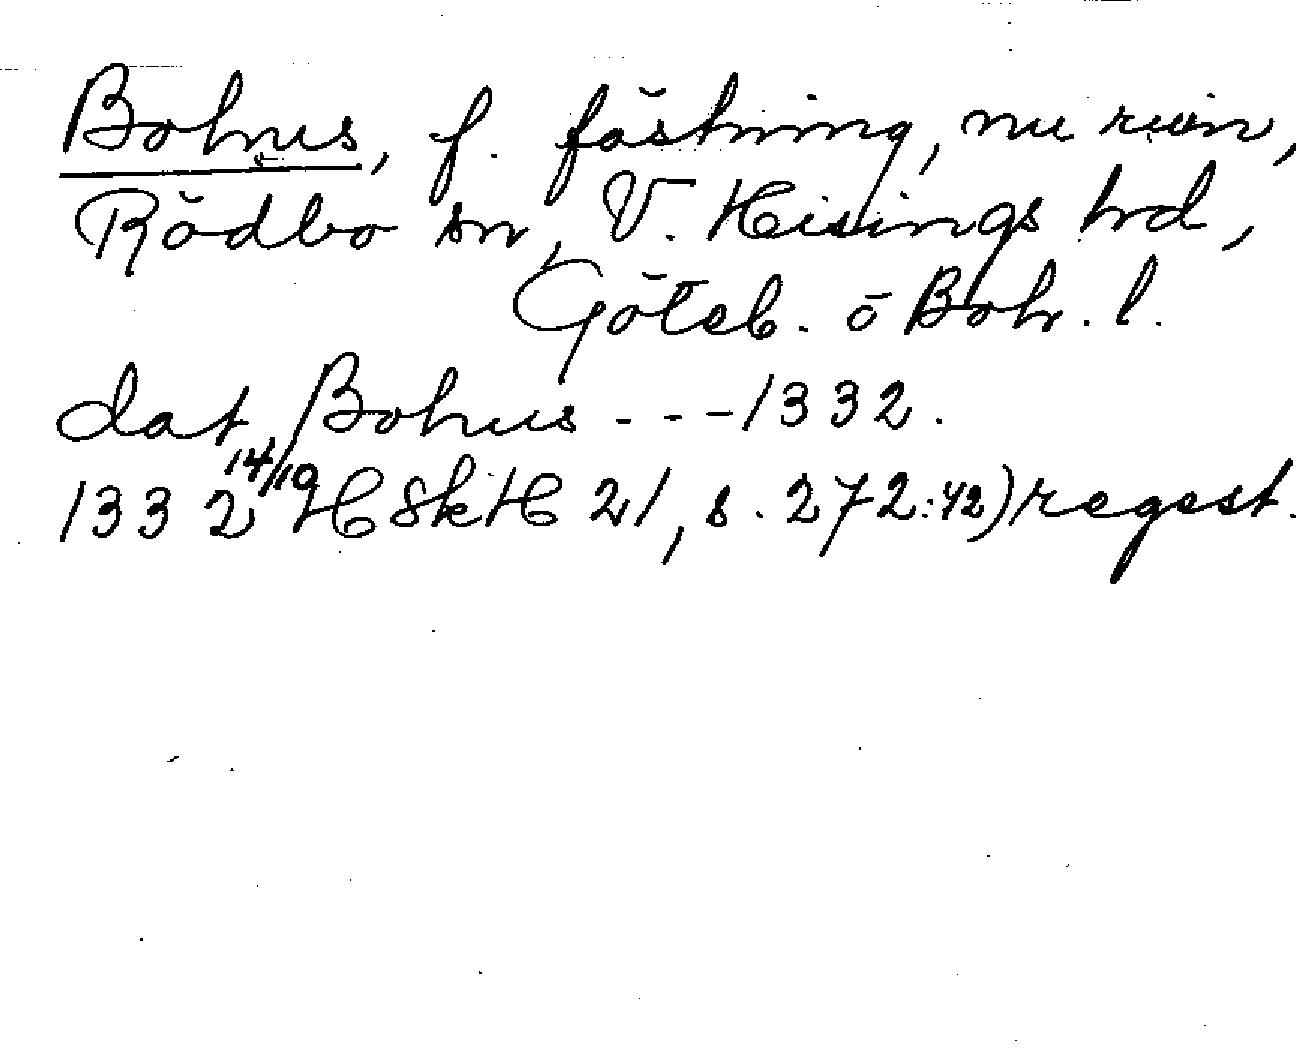 Bohus, f. fästning, nu ruin,
Rödbo sn, V. Hisings hd,
Göteb. o Boh. l.
dat. Bohus - - - 1332.
1332 14/10 HSkH 21, s. 272:42) regest.